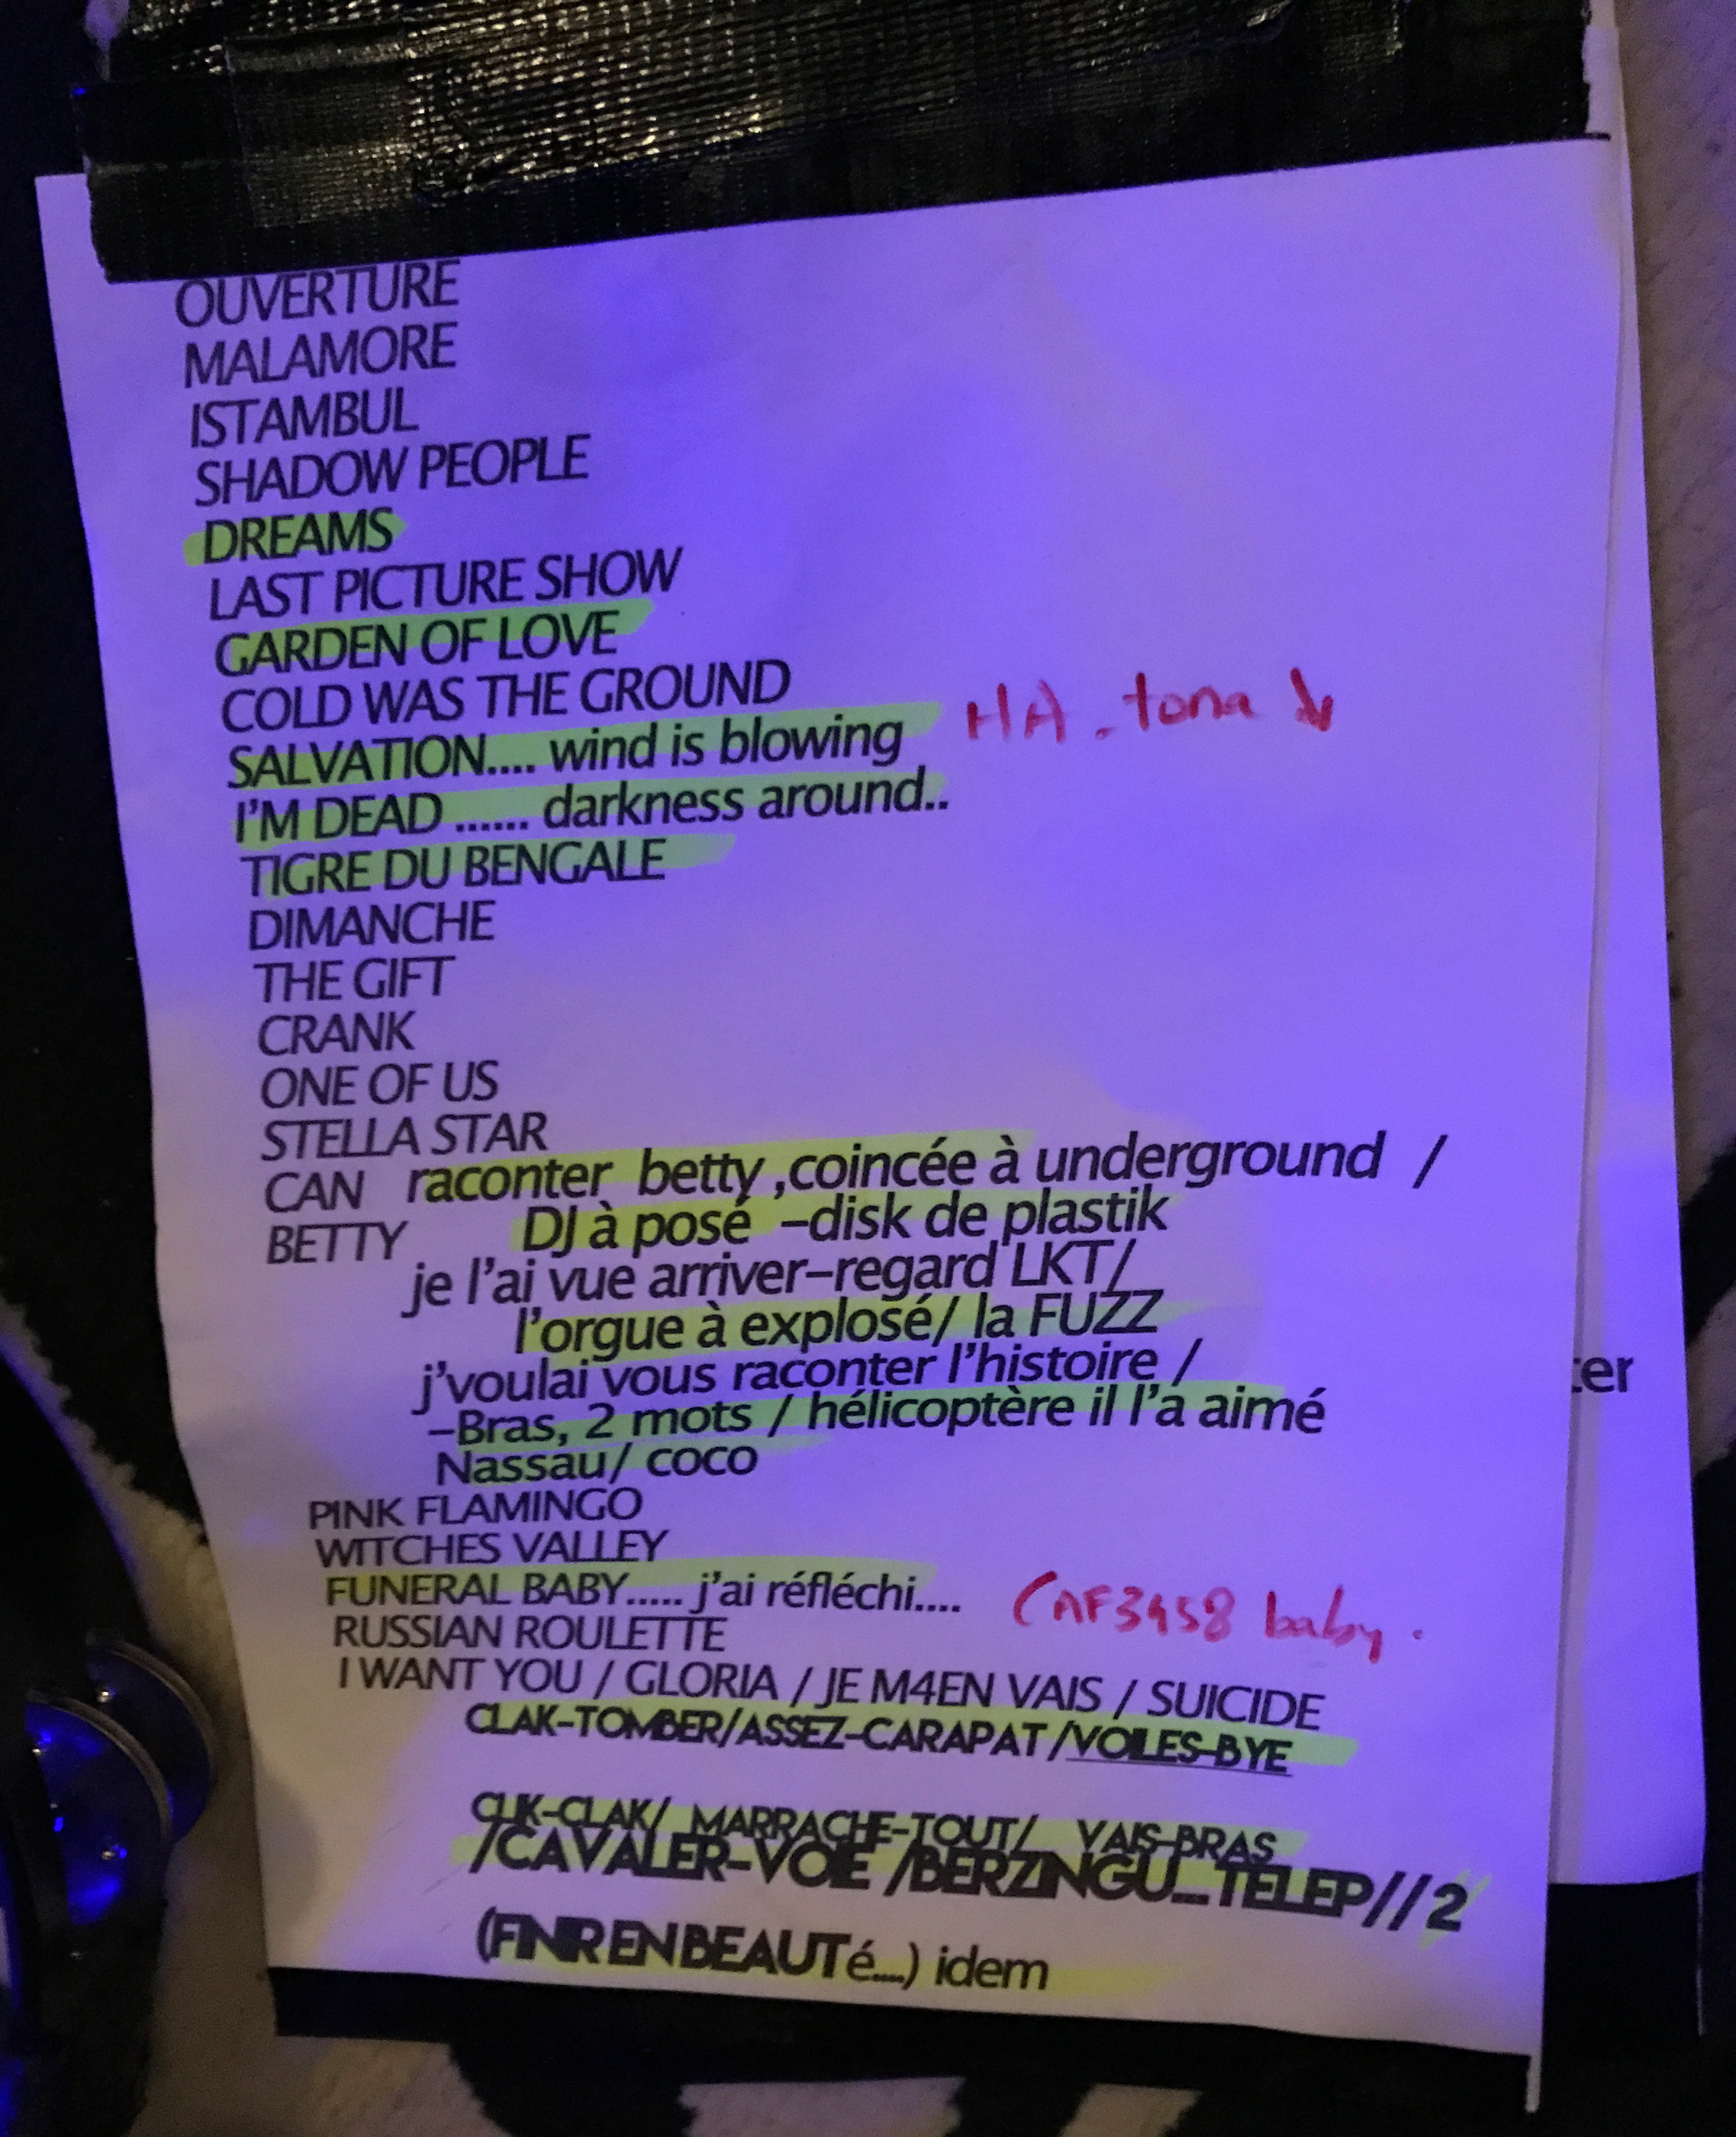 OUVERTURE
MALAMORE
ISTAMBUL
SHADOW PEOPLE
DREAMS
LAST PICTURE SHOW
GARDEN OF LOVE
COLD WAS THE GROUND
SALVATION.... wind is blowing HA. tona
I'M DEAD ...... darkness around..
TIGRE DU BENGALE
DIMANCHE
THE GIFT
CRANK
ONE OF US
STELLA STAR
CAN raconter betty ,coincée à underground /
BETTY DJ à posé –disk de plastik
je l'ai vue arriver–regard LKT/
l'orgue à explosé/ la FUZZ
j'voulai vous raconter l'histoire /
–Bras, 2 mots / hélicoptère il l'a aimé
Nassau/ coco
PINK FLAMINGO
WITCHES VALLEY
FUNERAL BABY..... j'ai réfléchi.... baby.
RUSSIAN ROULETTE
I WANT YOU / GLORIA / JE M4EN VAIS / SUICIDE
CLAK–TOMBER/ASSEZ–CARAPAT /VOILES–BYE
CLIK–CLAK/ MARRACHE–TOUT/ VAIS–BRAS
/CAVALER–VOIE /BERZINGU_TELEP//2
(FINIR EN BEAUTé....) idem
ter